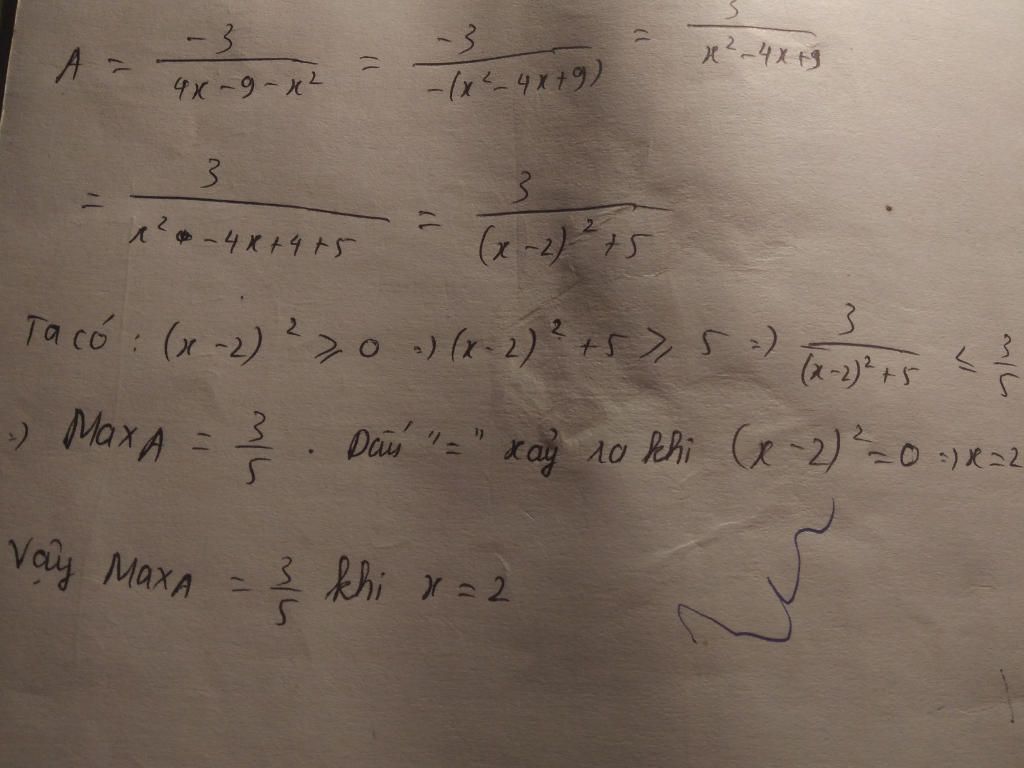 A = -3/(4x-9-x²) = -3/(-(x²-4x+9)) = 3/(x²-4x+9)
= 3/(x² -4x+4+5) = 3/((x-2)²+5)
Ta có : (x-2)² ⩾ 0 => (x-2)²+5 ⩾ 5 => 3/((x-2)²+5) ≤ 3/5
=> Max A = 3/5 . Dấu "=" xảy ra khi (x-2)²=0 => x=2
Vậy Max A = 3/5 khi x=2